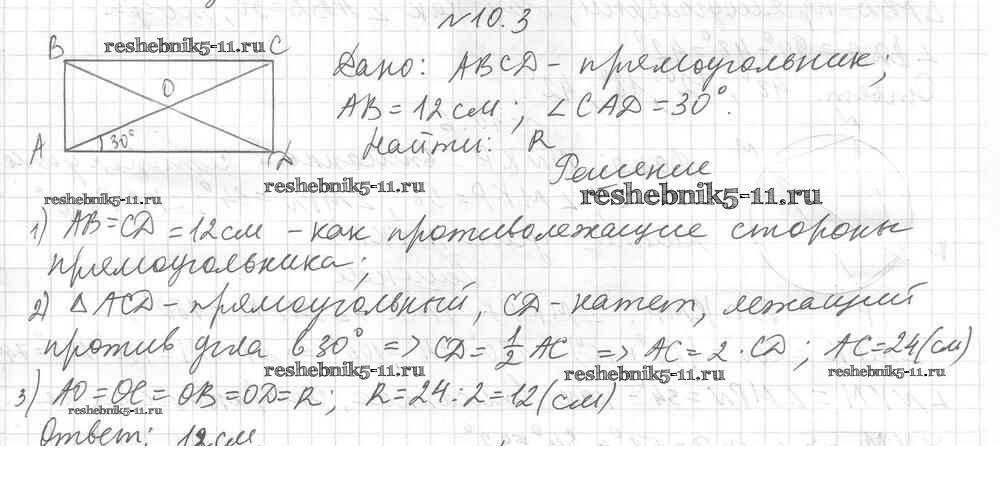 №10.3
B C
reshebnik5-11.ru
O
A 30° D
Дано: ABCD - прямоугольник;
AB = 12 см; ∠CAD = 30°.
Найти: R
Решение
reshebnik5-11.ru
reshebnik5-11.ru
reshebnik5-11.ru
1) AB = CD = 12 см - как противолежащие стороны
прямоугольника;
2) △ ACD - прямоугольный, CD - катет, лежащий
против угла в 30° => CD = 1/2 AC => AC = 2 · CD; AC = 24 (см)
reshebnik5-11.ru
reshebnik5-11.ru
reshebnik5-11.ru
3) AO = OC = OB = OD = R; R = 24 : 2 = 12 (см)
reshebnik5-11.ru
Ответ: 12 см